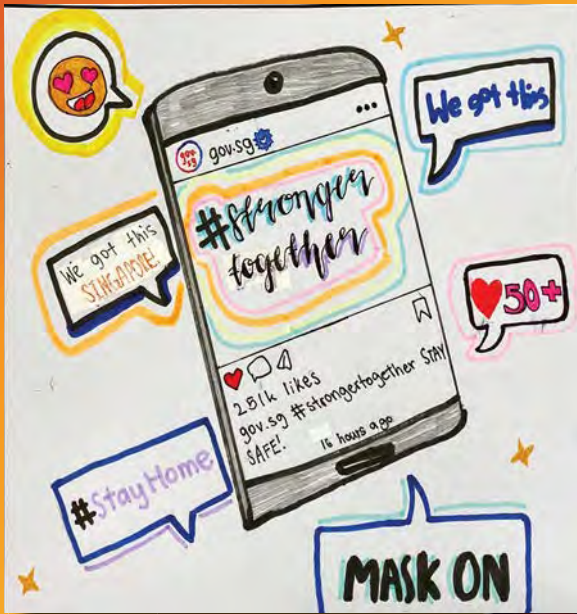 We got this
gov.sg
gov.sg
#stronger
together
We got this
SINGAPORE!
50+
251k likes
gov.sg #strongertogether STAY
SAFE!
16 hours ago
#StayHome
MASK ON